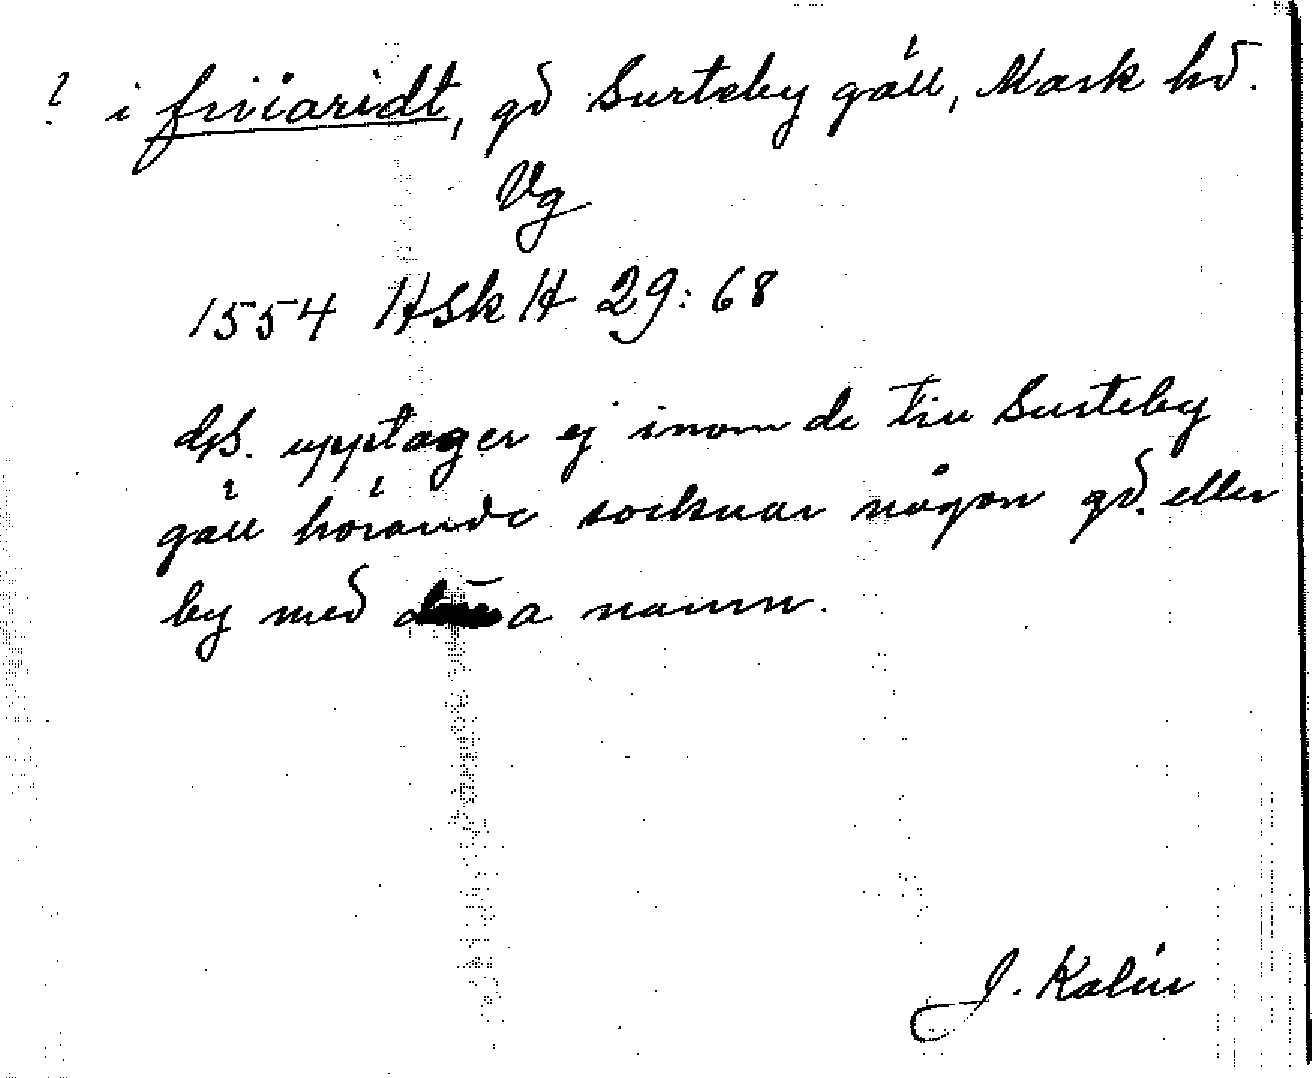 ? i friiaridt, gd Surteby gäll, Mark hd.
Vg
1554 HSkH 29:68
GS. upptager ej inom de till Surteby
gäll hörande socknar någon gd. eller
by med a namn.
J. Kalén